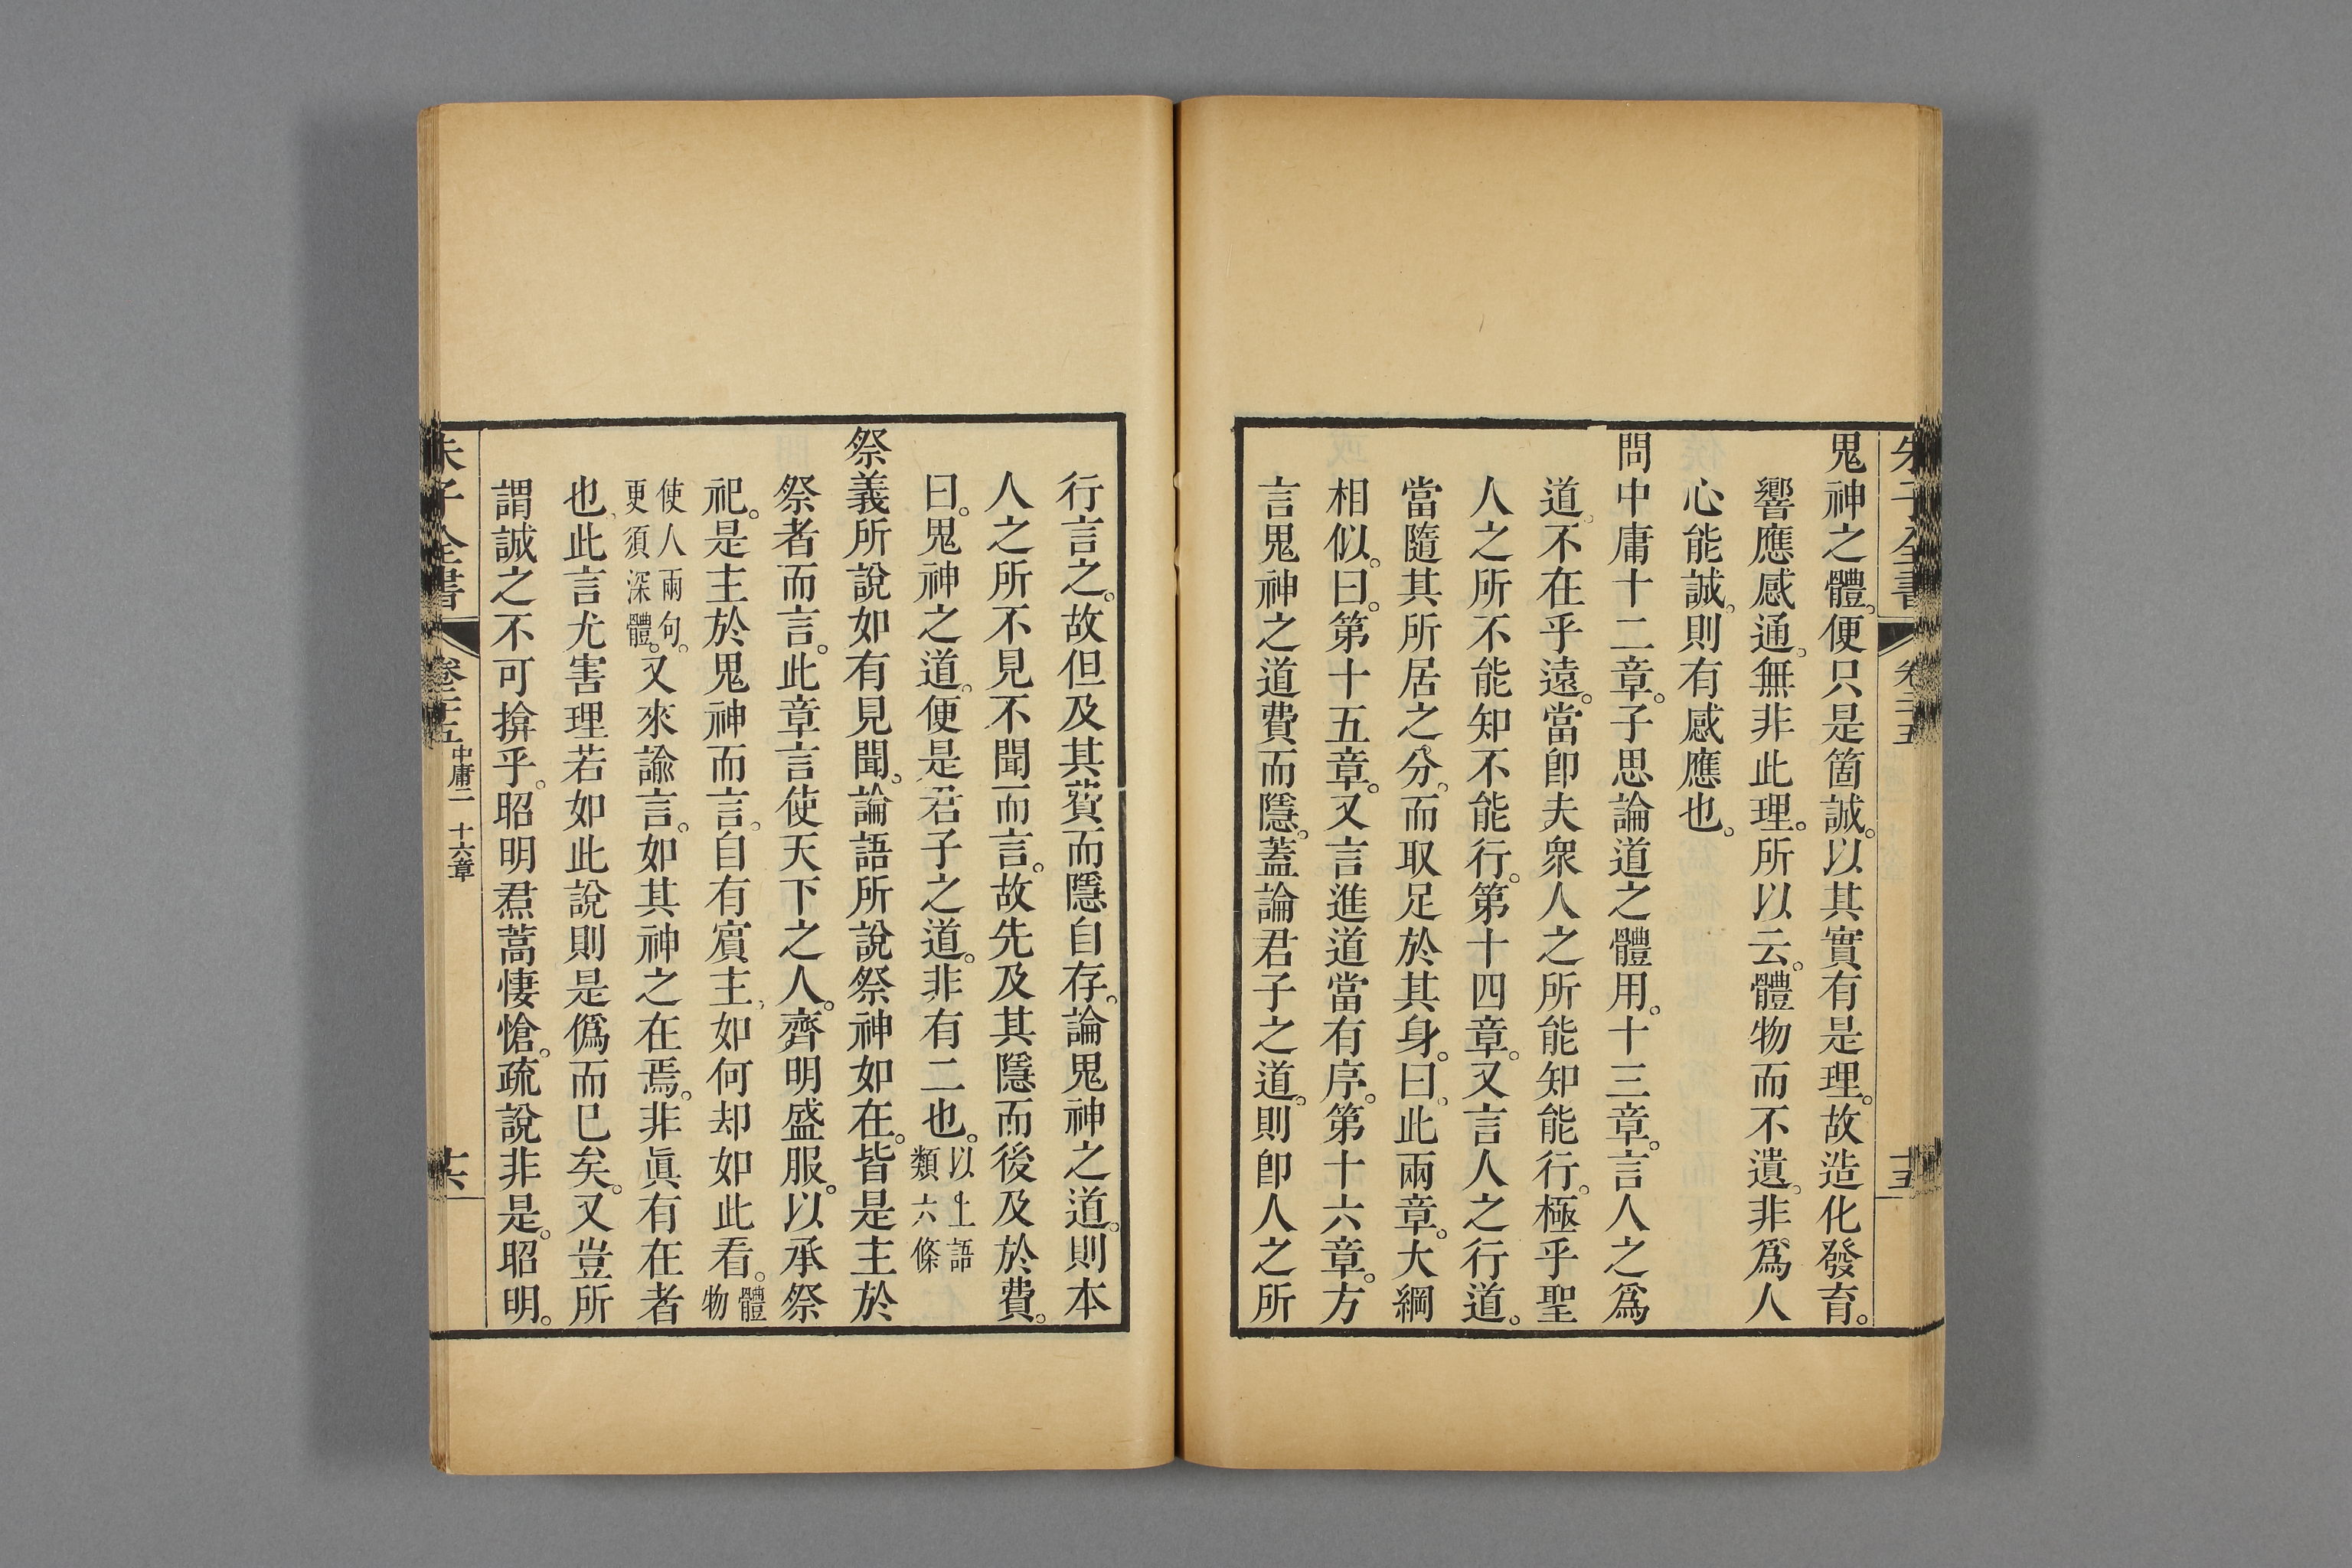 朱子全書 卷二十五 十五
鬼神之體。便只是箇誠。以其實有是理。故造化發育。
響應感通。無非此理。所以云。體物而不遺。非爲人
心能誠。則有感應也。
問中庸十二章。子思論道之體用。十三章。言人之爲
道。不在乎遠。當卽夫衆人之所能知能行。極乎聖
人之所不能知不能行。第十四章。又言人之行道。
當隨其所居之分。而取足於其身。曰。此兩章。大綱
相似。曰。第十五章。又言進道當有序。第十六章。方
言鬼神之道費而隱。蓋論君子之道。則卽人之所
行言之。故但及其費而隱自存。論鬼神之道。則本
人之所不見不聞而言。故先及其隱而後及於費。
曰。鬼神之道。便是君子之道。非有二也。以上語類六條
祭義所說如有見聞。論語所說祭神如在。皆是主於
祭者而言。此章言使天下之人。齊明盛服。以承祭
祀。是主於鬼神而言。自有賓主、如何却如此看。體物
使人兩句。更須深體。又來諭言。如其神之在焉。非眞有在者
也、此言尤害理若如此說則是僞而已矣。又豈所
謂誠之不可揜乎。昭明焄蒿悽愴。疏說非是。昭明。
朱子全書 卷二十五 中庸二 十六章 十六